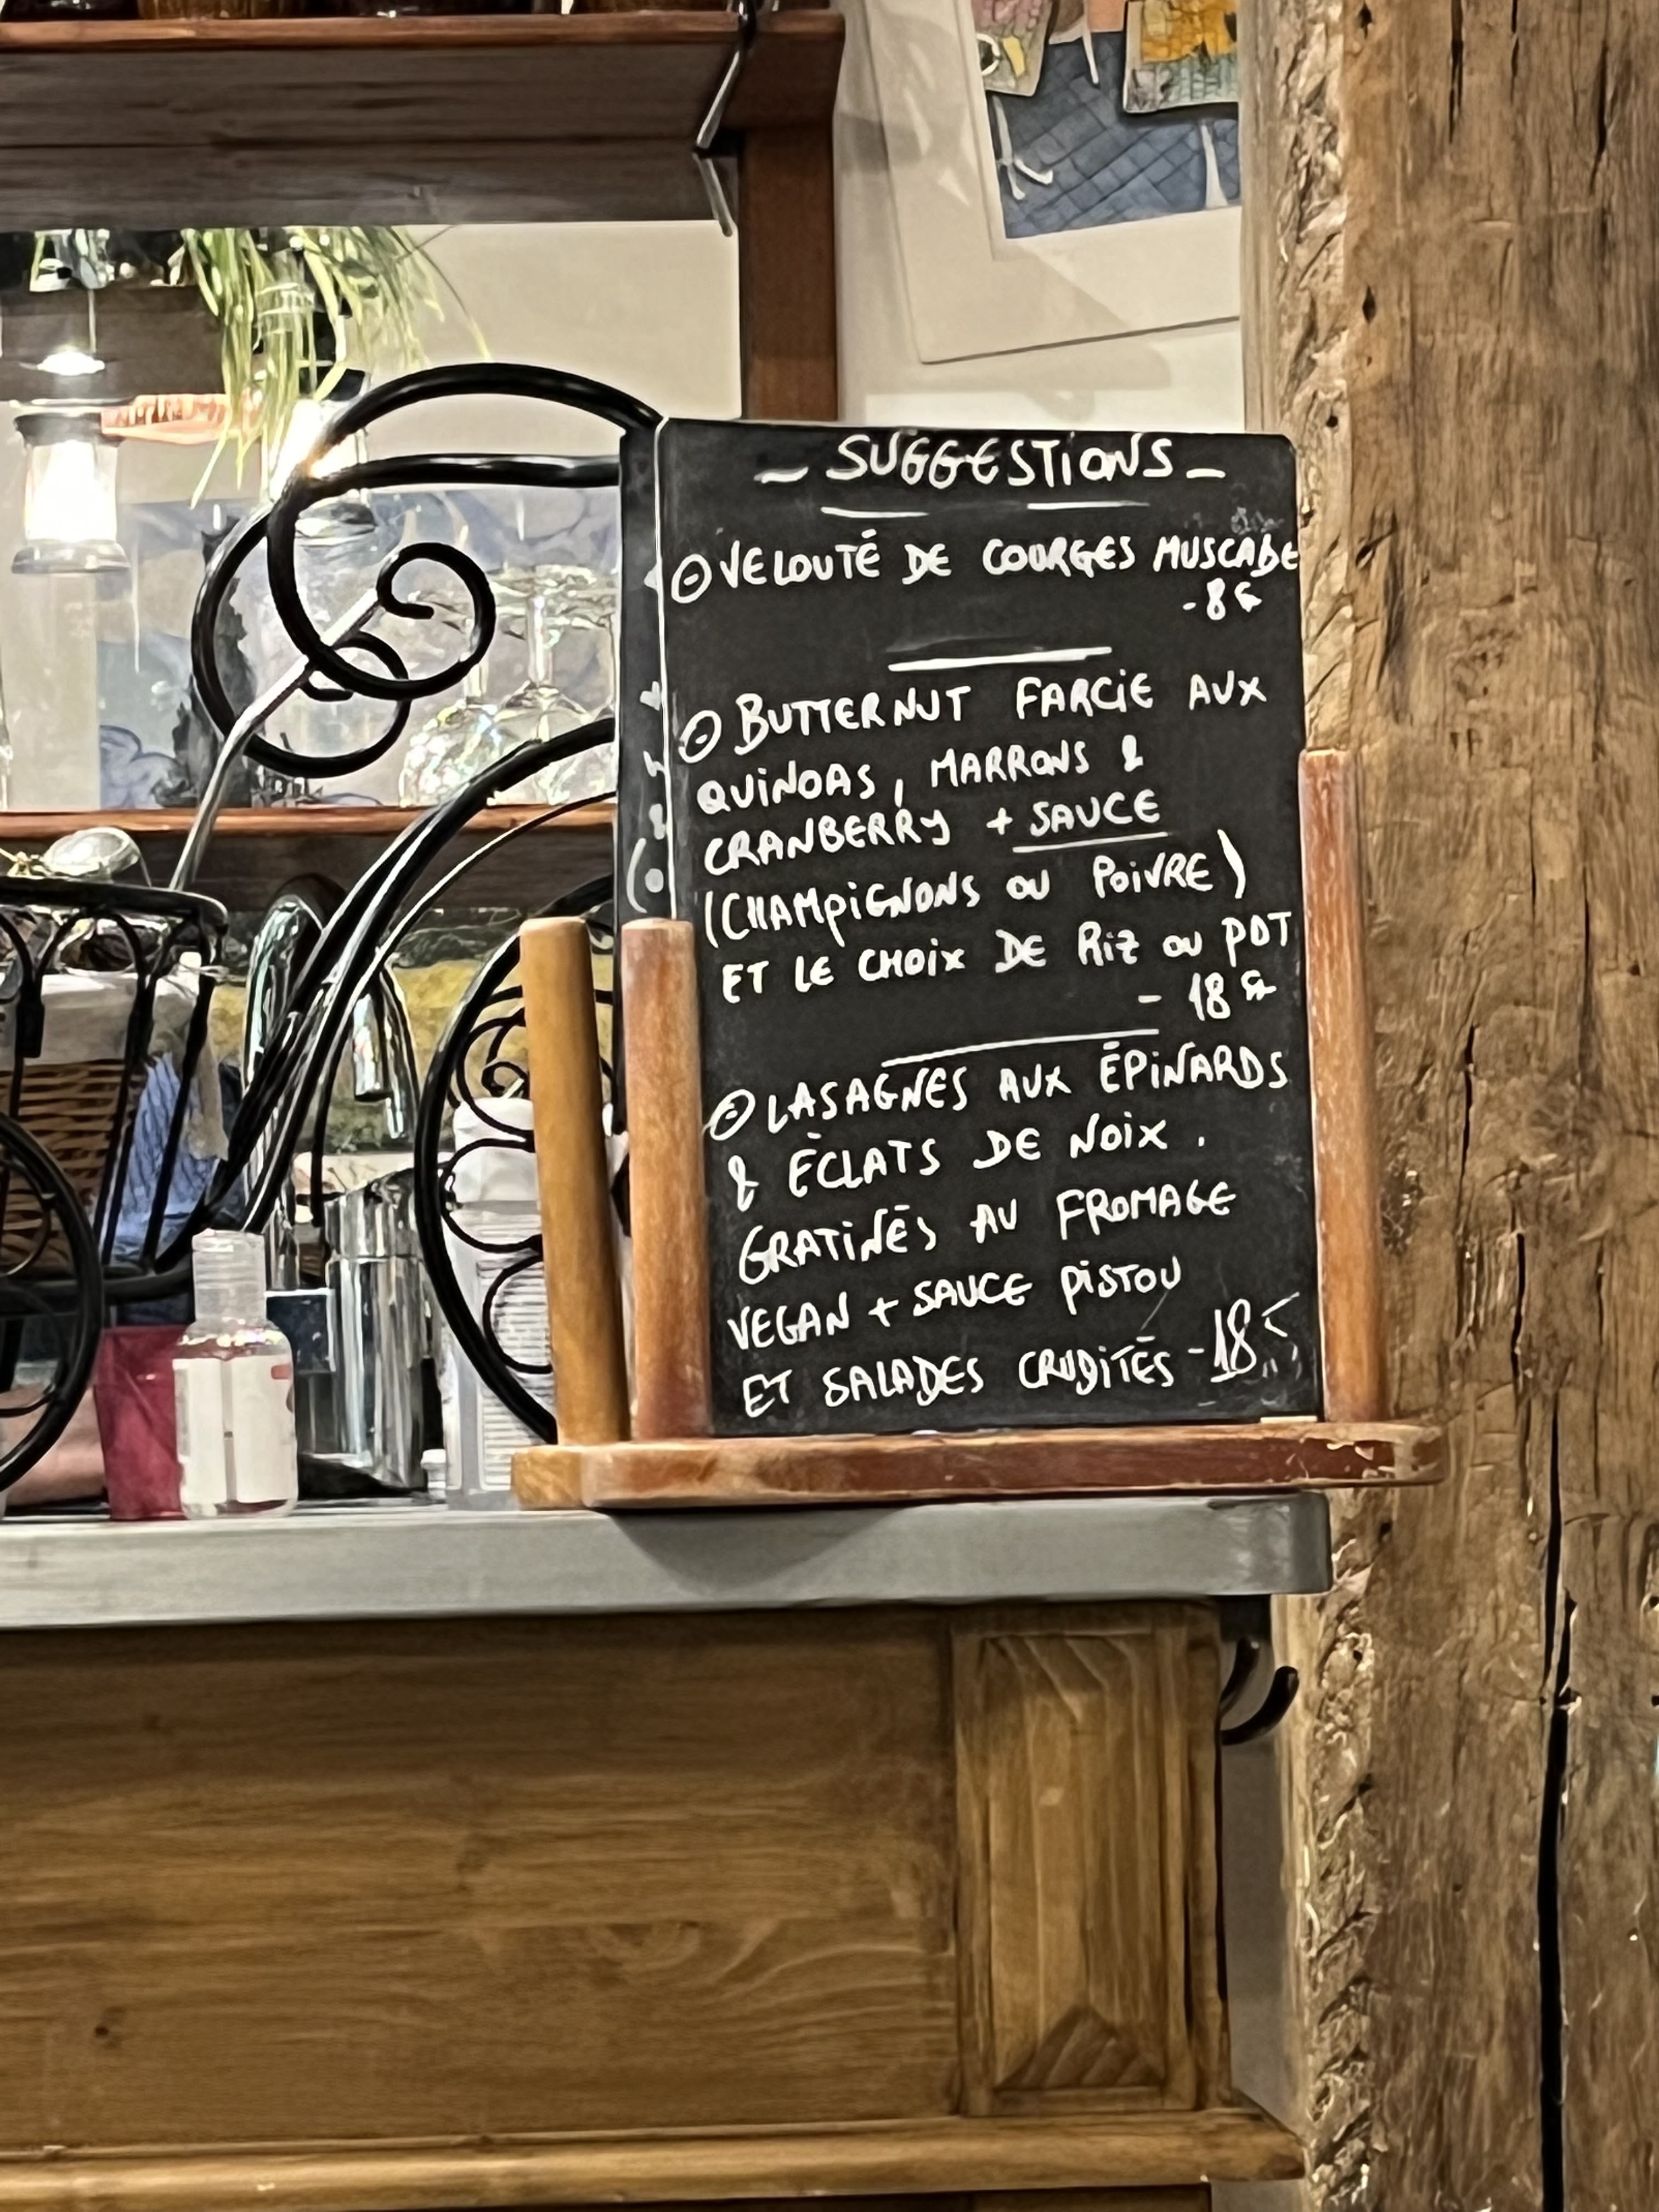 - SUGGESTIONS -
VELOUTÉ DE COURGES MUSCADE
- 8€
BUTTERNUT FARCIE AUX
QUINOAS, MARRONS &
CRANBERRY + SAUCE
(CHAMPIGNONS OU POIVRE)
ET LE CHOIX DE RIZ OU PDT
- 18€
LASAGNES AUX ÉPINARDS
& ÉCLATS DE NOIX.
GRATINÉS AU FROMAGE
VEGAN + SAUCE PISTOU
ET SALADES CRUDITÉS - 18€